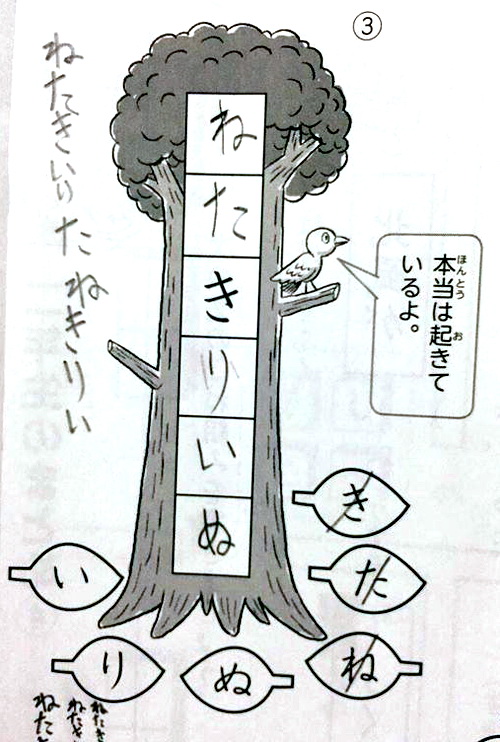 ③
本当は起きて
いるよ。
ほんとう
お
ね
た
き
り
い
ぬ
ねたきいり
たねきりい
き
た
ね
ぬ
り
い
ねたき
ねたき
ねた